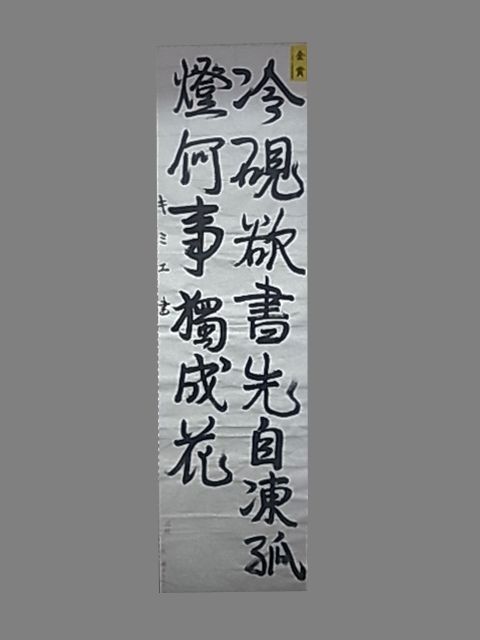 冷硯欲書先自凍孤
燈何事獨成花
キミエ書
金賞